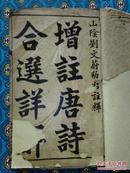 山陰劉文蔚豹君註釋
增註唐詩
合選詳解